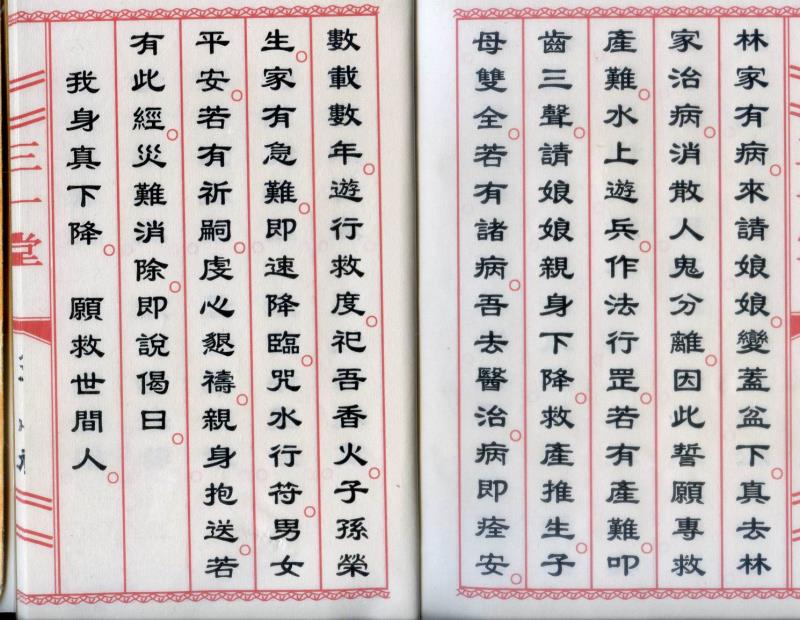 林家有病。來請娘娘。變蓋盆下。真去林
家治病。消散人鬼分離。因此誓願專救
產難。水上遊兵。作法行罡。若有產難。叩
齒三聲。請娘娘親身下降。救產推生子。
母雙全。若有諸病。吾去醫治。病即痊安。
數載數年。遊行救度。祀吾香火。子孫榮
生。家有急難。即速降臨。咒水行符。男女
平安。若有祈嗣。虔心懇禱。親身抱送。若
有此經。災難消除。即說偈曰。
我身真下降。願救世間人。
三一堂